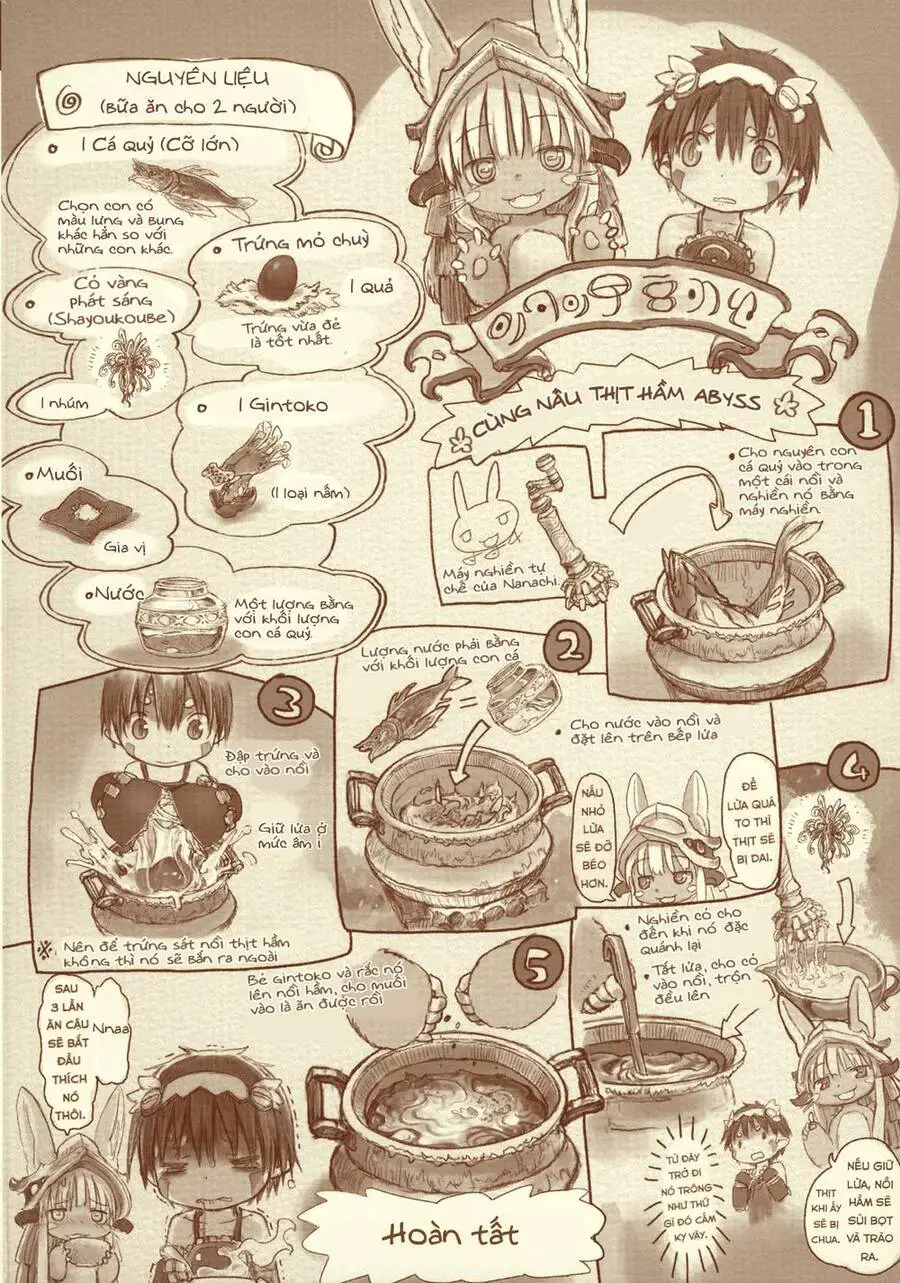 NGUYÊN LIỆU
(BỮA ĂN CHO 2 NGƯỜI)
1 CÁ QUỶ (CỠ LỚN)
CHỌN CON CÓ
MÀU LƯNG VÀ BỤNG
KHÁC HẲN SO VỚI
NHỮNG CON KHÁC.
TRỨNG MỎ CHUỲ
1 QUẢ
TRỨNG VỪA ĐẺ
LÀ TỐT NHẤT.
CỎ VÀNG
PHÁT SÁNG
(SHAYOUKOUBE)
1 NHÚM
1 GINTOKO
(1 LOẠI NẤM)
MUỐI
GIA VỊ
NƯỚC
MỘT LƯỢNG BẰNG
VỚI KHỐI LƯỢNG
CON CÁ QUỶ.
CÙNG NÂU THỊT HẦM ABYSS
1
CHO NGUYÊN CON
CÁ QUỶ VÀO TRONG
MỘT CÁI NỒI VÀ
NGHIỀN NÓ BẰNG
MÁY NGHIỀN.
MÁY NGHIỀN TỰ
CHẾ CỦA NANACHI.
2
LƯỢNG NƯỚC PHẢI BẰNG
VỚI KHỐI LƯỢNG CON CÁ
=
CHO NƯỚC VÀO NỒI VÀ
ĐẶT LÊN TRÊN BẾP LỬA
ĐỂ
LỬA QUÁ
TO THÌ
THỊT SẼ
BỊ DAI.
NẤU
NHỎ
LỬA
SẼ ĐỠ
BÉO
HƠN.
3
ĐẬP TRỨNG VÀ
CHO VÀO NỒI
GIỮ LỬA Ở
MỨC ÂM Ỉ
※ NÊN ĐỂ TRỨNG SÁT NỒI THỊT HẦM
KHÔNG THÌ NÓ SẼ BẮN RA NGOÀI
4
NGHIỀN CỎ CHO
ĐẾN KHI NÓ ĐẶC
QUÁNH LẠI
TẮT LỬA, CHO CỎ
VÀO NỒI, TRỘN
ĐỀU LÊN
NẾU GIỮ
LỬA, NỒI
HẦM SẼ
SỦI BỌT
VÀ TRÀO
RA.
THỊT
KHI ẤY
SẼ BỊ
CHUA.
TỪ ĐÂY
TRỞ ĐI
NÓ TRÔNG
NHƯ THỨ
GÌ ĐÓ CẤM
KỴ VẬY.
5
BẺ GINTOKO VÀ RẮC NÓ
LÊN NỒI HẦM, CHO MUỐI
VÀO LÀ ĂN ĐƯỢC RỒI
HOÀN TẤT
NNAA
SAU
3 LẦN
ĂN CẬU
SẼ BẮT
ĐẦU
THÍCH
NÓ
THÔI.